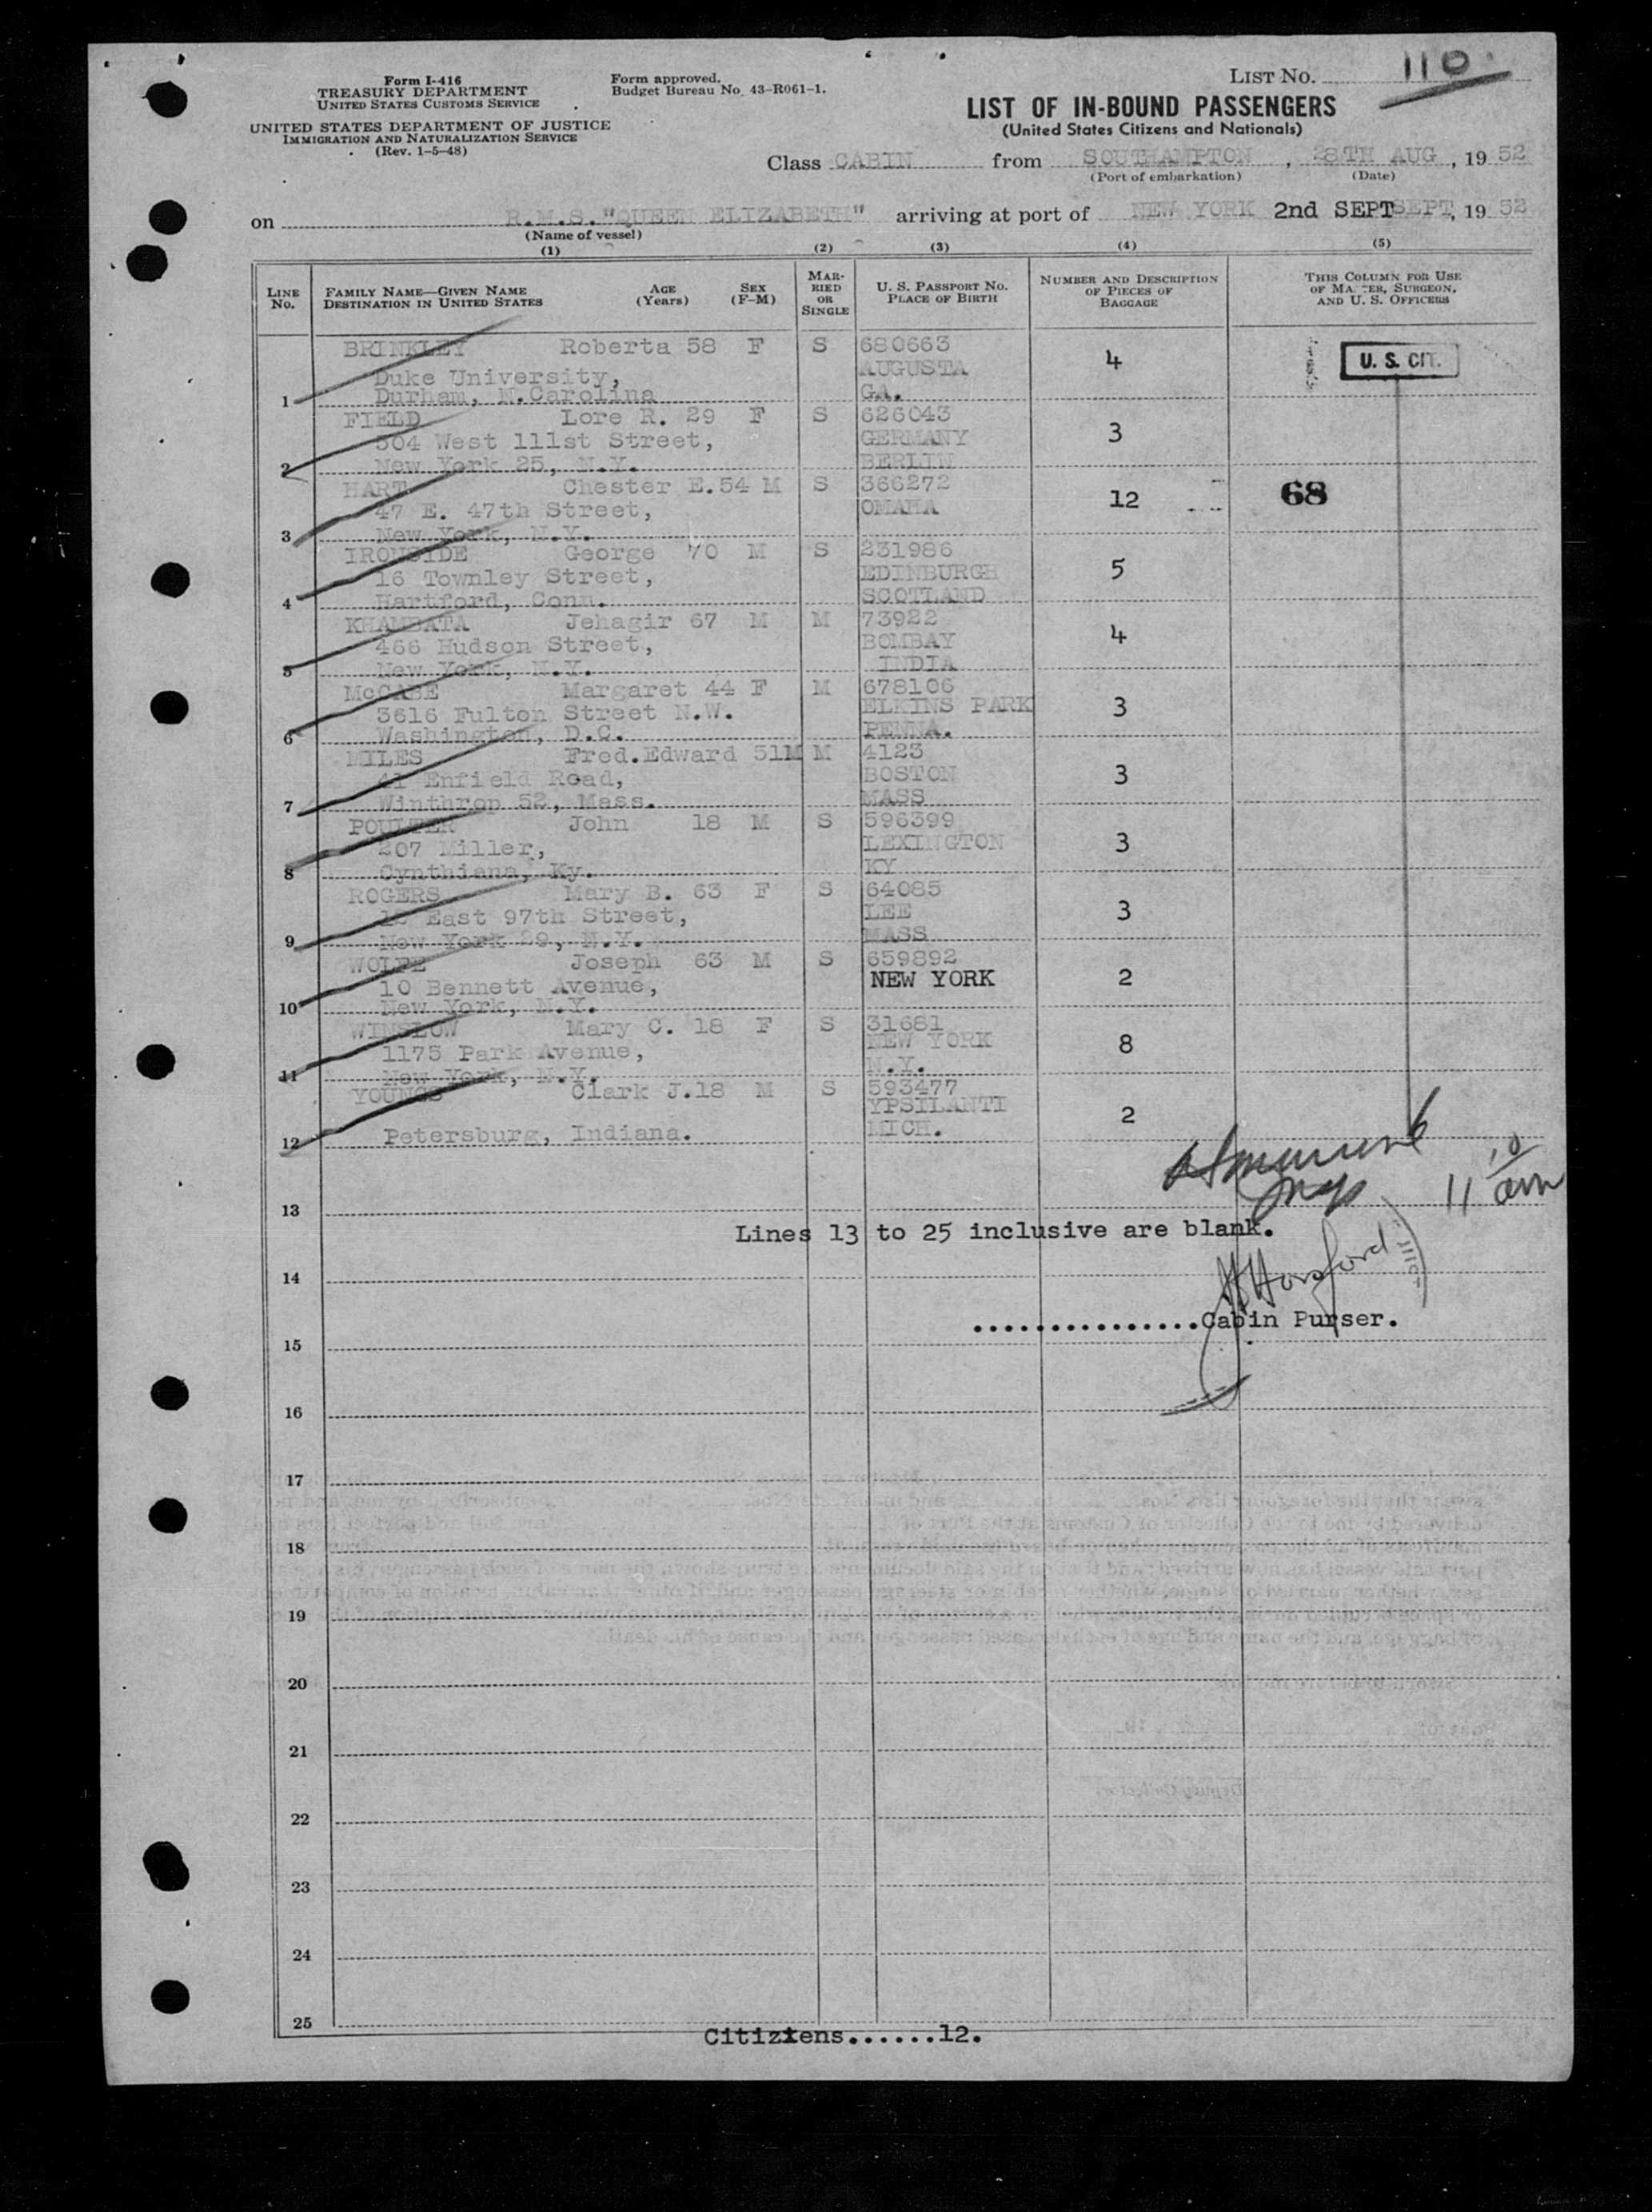 Form I-416
TREASURY DEPARTMENT
UNITED STATES CUSTOMS SERVICE
UNITED STATES DEPARTMENT OF JUSTICE
IMMIGRATION AND NATURALIZATION SERVICE
(Rev. 1-5-48)
Form approved.
Budget Bureau No. 43-R061-1.
LIST NO. 110
LIST OF IN-BOUND PASSENGERS
(United States Citizens and Nationals)
Class CABIN from SOUTHAMPTON , 28TH AUG , 19 52
(Port of embarkation) (Date)
on R.M.S."QUEEN ELIZABETH" arriving at port of NEW YORK 2nd SEPT SEPT, 19 52
(Name of vessel)
(1) (2) (3) (4) (5)
LINE No. FAMILY NAME—GIVEN NAME DESTINATION IN UNITED STATES AGE (Years) SEX (F-M) MARRIED OR SINGLE U. S. PASSPORT NO. PLACE OF BIRTH NUMBER AND DESCRIPTION OF PIECES OF BAGGAGE THIS COLUMN FOR USE OF MASTER, SURGEON, AND U. S. OFFICERS
BRINKLEY Roberta 58 F S 680663 4 U. S. CIT.
Duke University, AUGUSTA
1 Durham, N.Carolina GA.
FIELD Lore R. 29 F S 626043 3
504 West 111st Street, GERMANY
2 New York 25, N.Y. BERLIN
HART Chester E. 54 M S 366272 12 68
47 E. 47th Street, OMAHA
3 New York, N.Y.
IRONSIDE George 70 M S 231986 5
16 Townley Street, EDINBURGH
4 Hartford, Conn. SCOTLAND
KHAMBATA Jehagir 67 M M 73922 4
466 Hudson Street, BOMBAY
5 New York, N.Y. INDIA
McCABE Margaret 44 F M 678106 3
3616 Fulton Street N.W. ELKINS PARK
6 Washington, D.C. PENNA.
MILES Fred.Edward 51M M 4123 3
41 Enfield Road, BOSTON
7 Winthrop 52, Mass. MASS
POULTER John 18 M S 596399 3
207 Miller, LEXINGTON
8 Cynthiana, Ky. KY
ROGERS Mary B. 63 F S 64085 3
East 97th Street, LEE
9 New York 29, N.Y. MASS
WOLFE Joseph 63 M S 659892 2
10 Bennett Avenue, NEW YORK
10 New York, N.Y.
WINSLOW Mary C. 18 F S 31681 8
1175 Park Avenue, NEW YORK
11 New York, N.Y. N.Y.
YOUNGS Clark J.18 M S 593477 2
YPSILANTI
12 Petersburg, Indiana. MICH.
11 10 am
13
Lines 13 to 25 inclusive are blank.
14
...............Cabin Purser.
15
16
17
18
19
20
21
22
23
24
25
Citizxens......12.